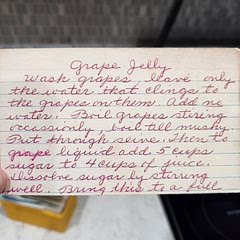 Grape Jelly
Wash grapes, leave only
the water that clings to
the grapes on them. Add no
water. Boil grapes stiring
occassionly, boil till mushy.
Put through seive. Then to
grape liquid add 5 cups
sugar to 4 cups of juice.
Dissolve sugar by stirring
well. Bring this to a full